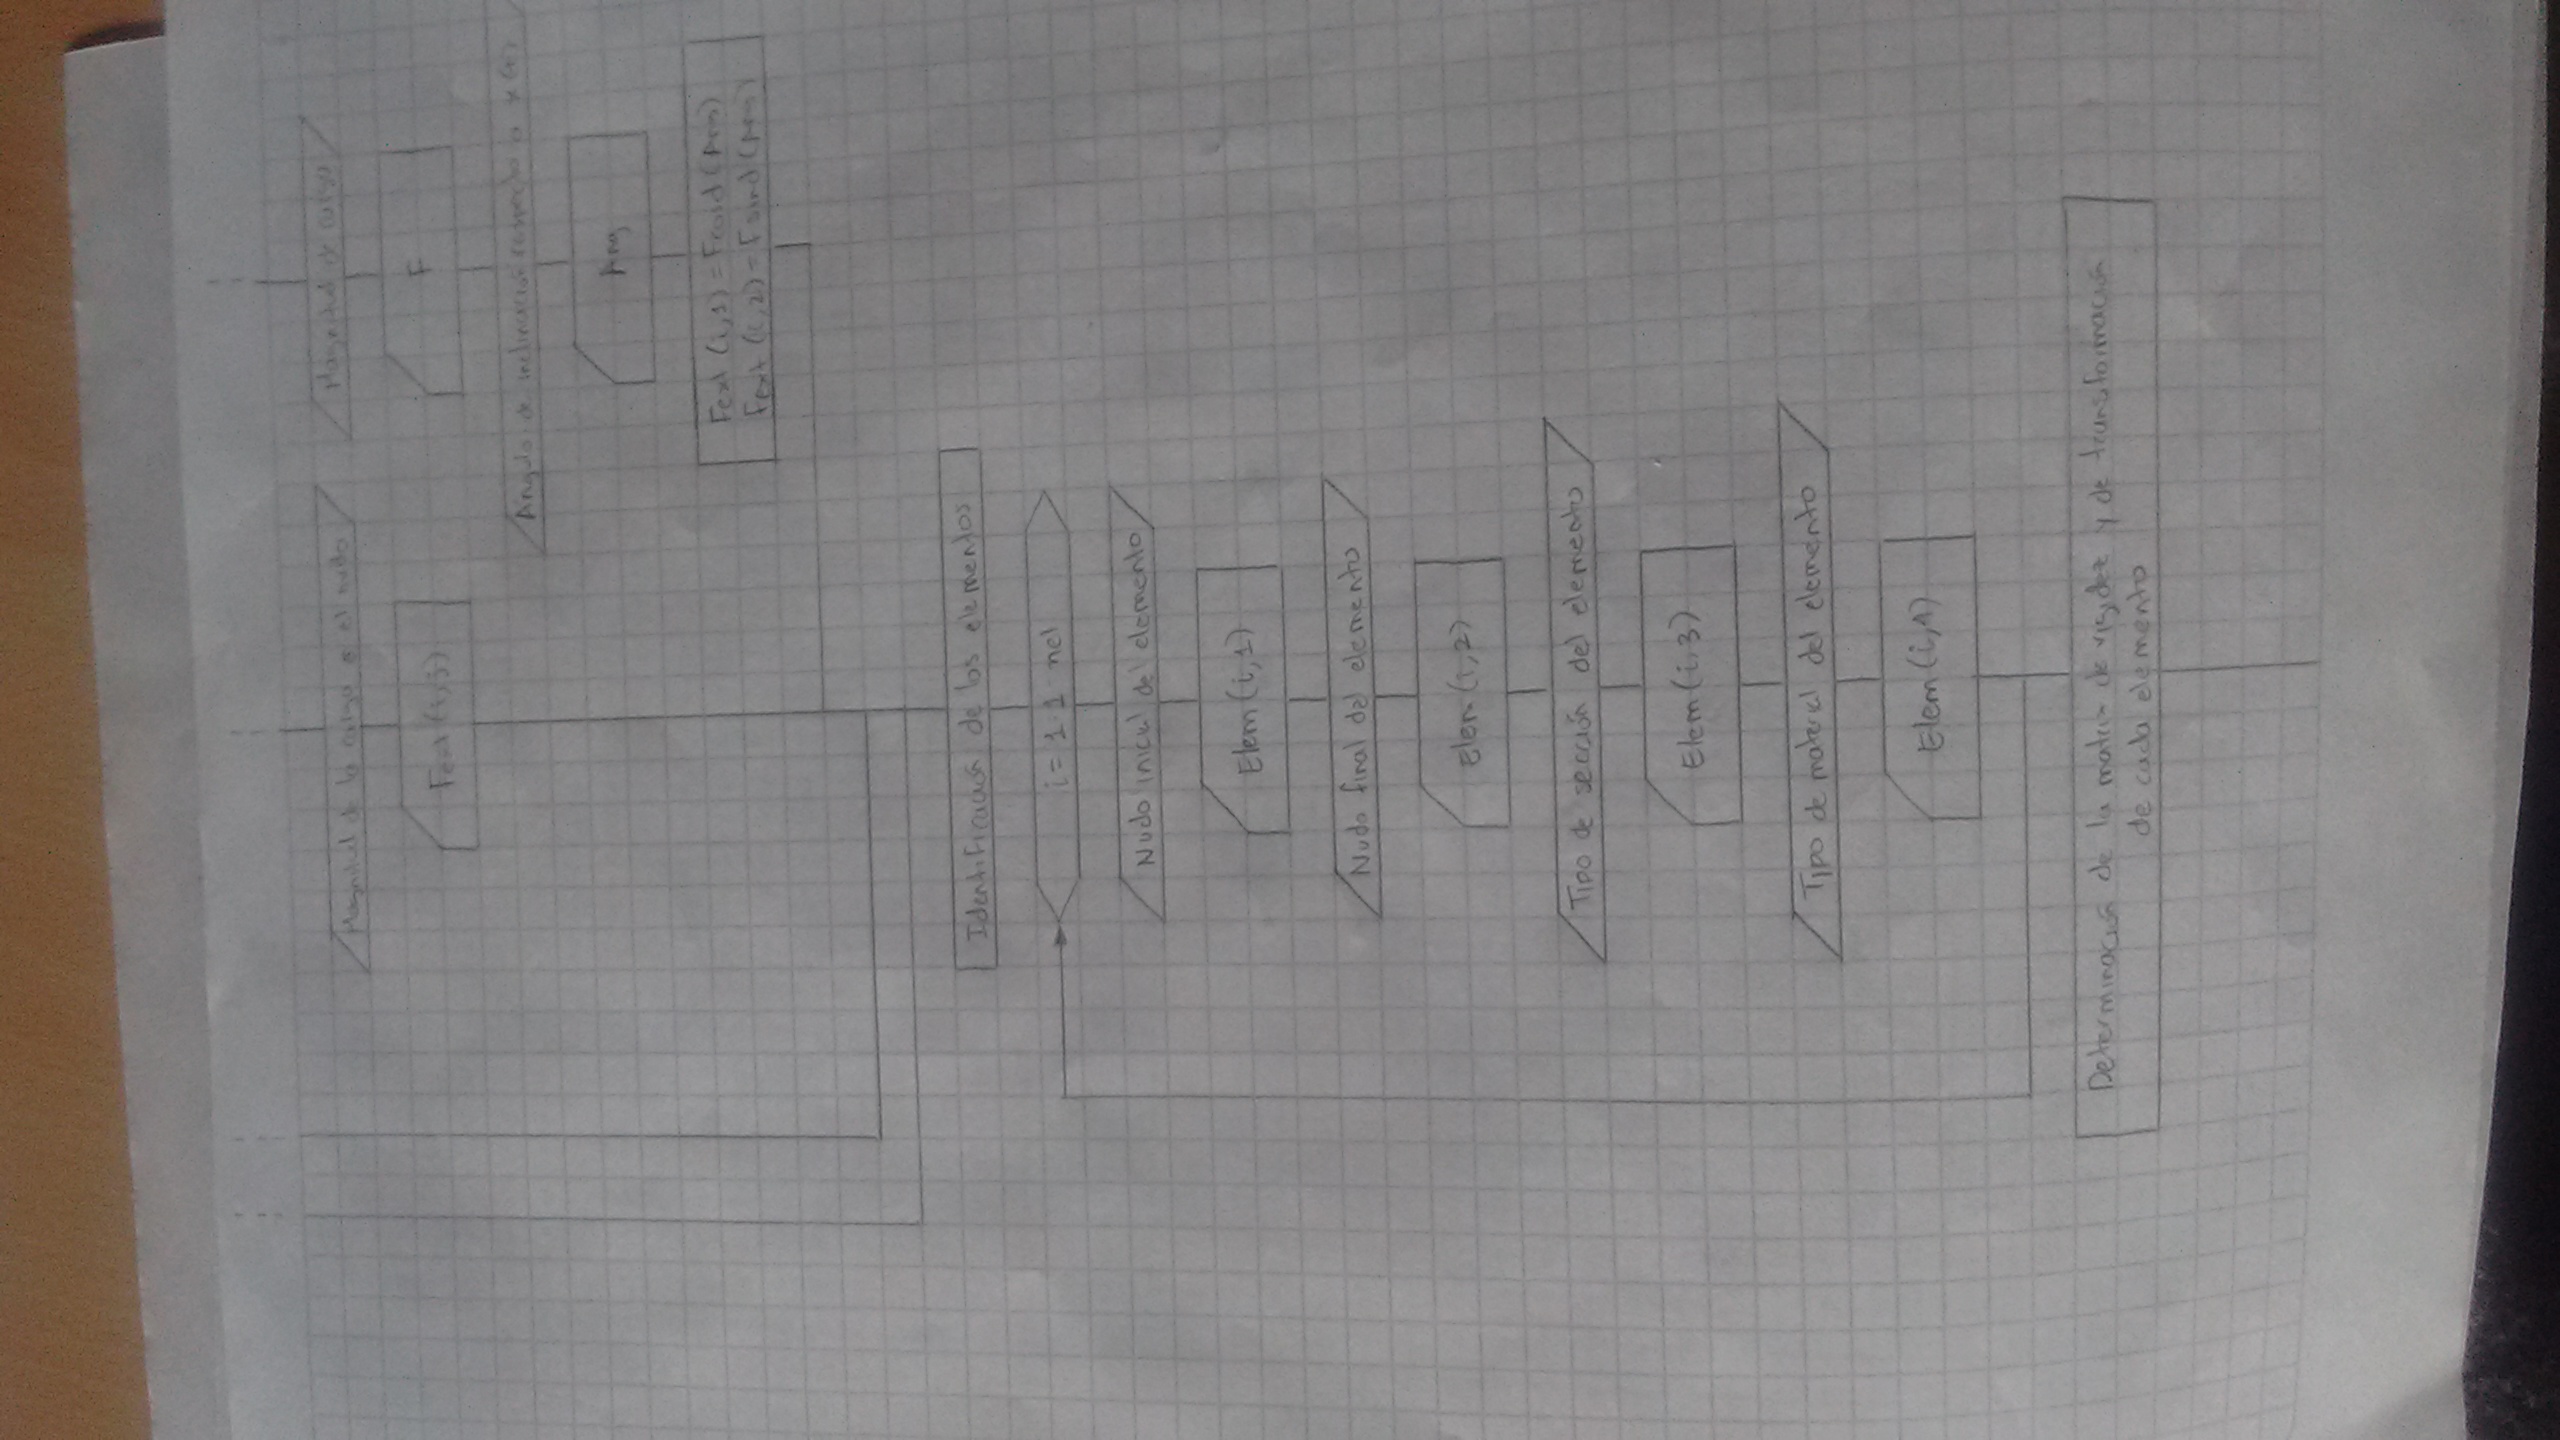 Magnitud de la carga en el nudo
Fext (i,j)
Magnitud de carga
F
Angulo de inclinación respecto a x (°)
Ang
Fext (i,1) = Fcosd (Ang)
Fext (i,2) = Fsind (Ang)
Identificación de los elementos
i = 1:1:nel
Nudo inicial del elemento
Elem (i,1)
Nudo final del elemento
Elem (i,2)
Tipo de sección del elemento
Elem (i,3)
Tipo de material del elemento
Elem (i,4)
Determinación de la matriz de rigidez y de transformación
de cada elemento